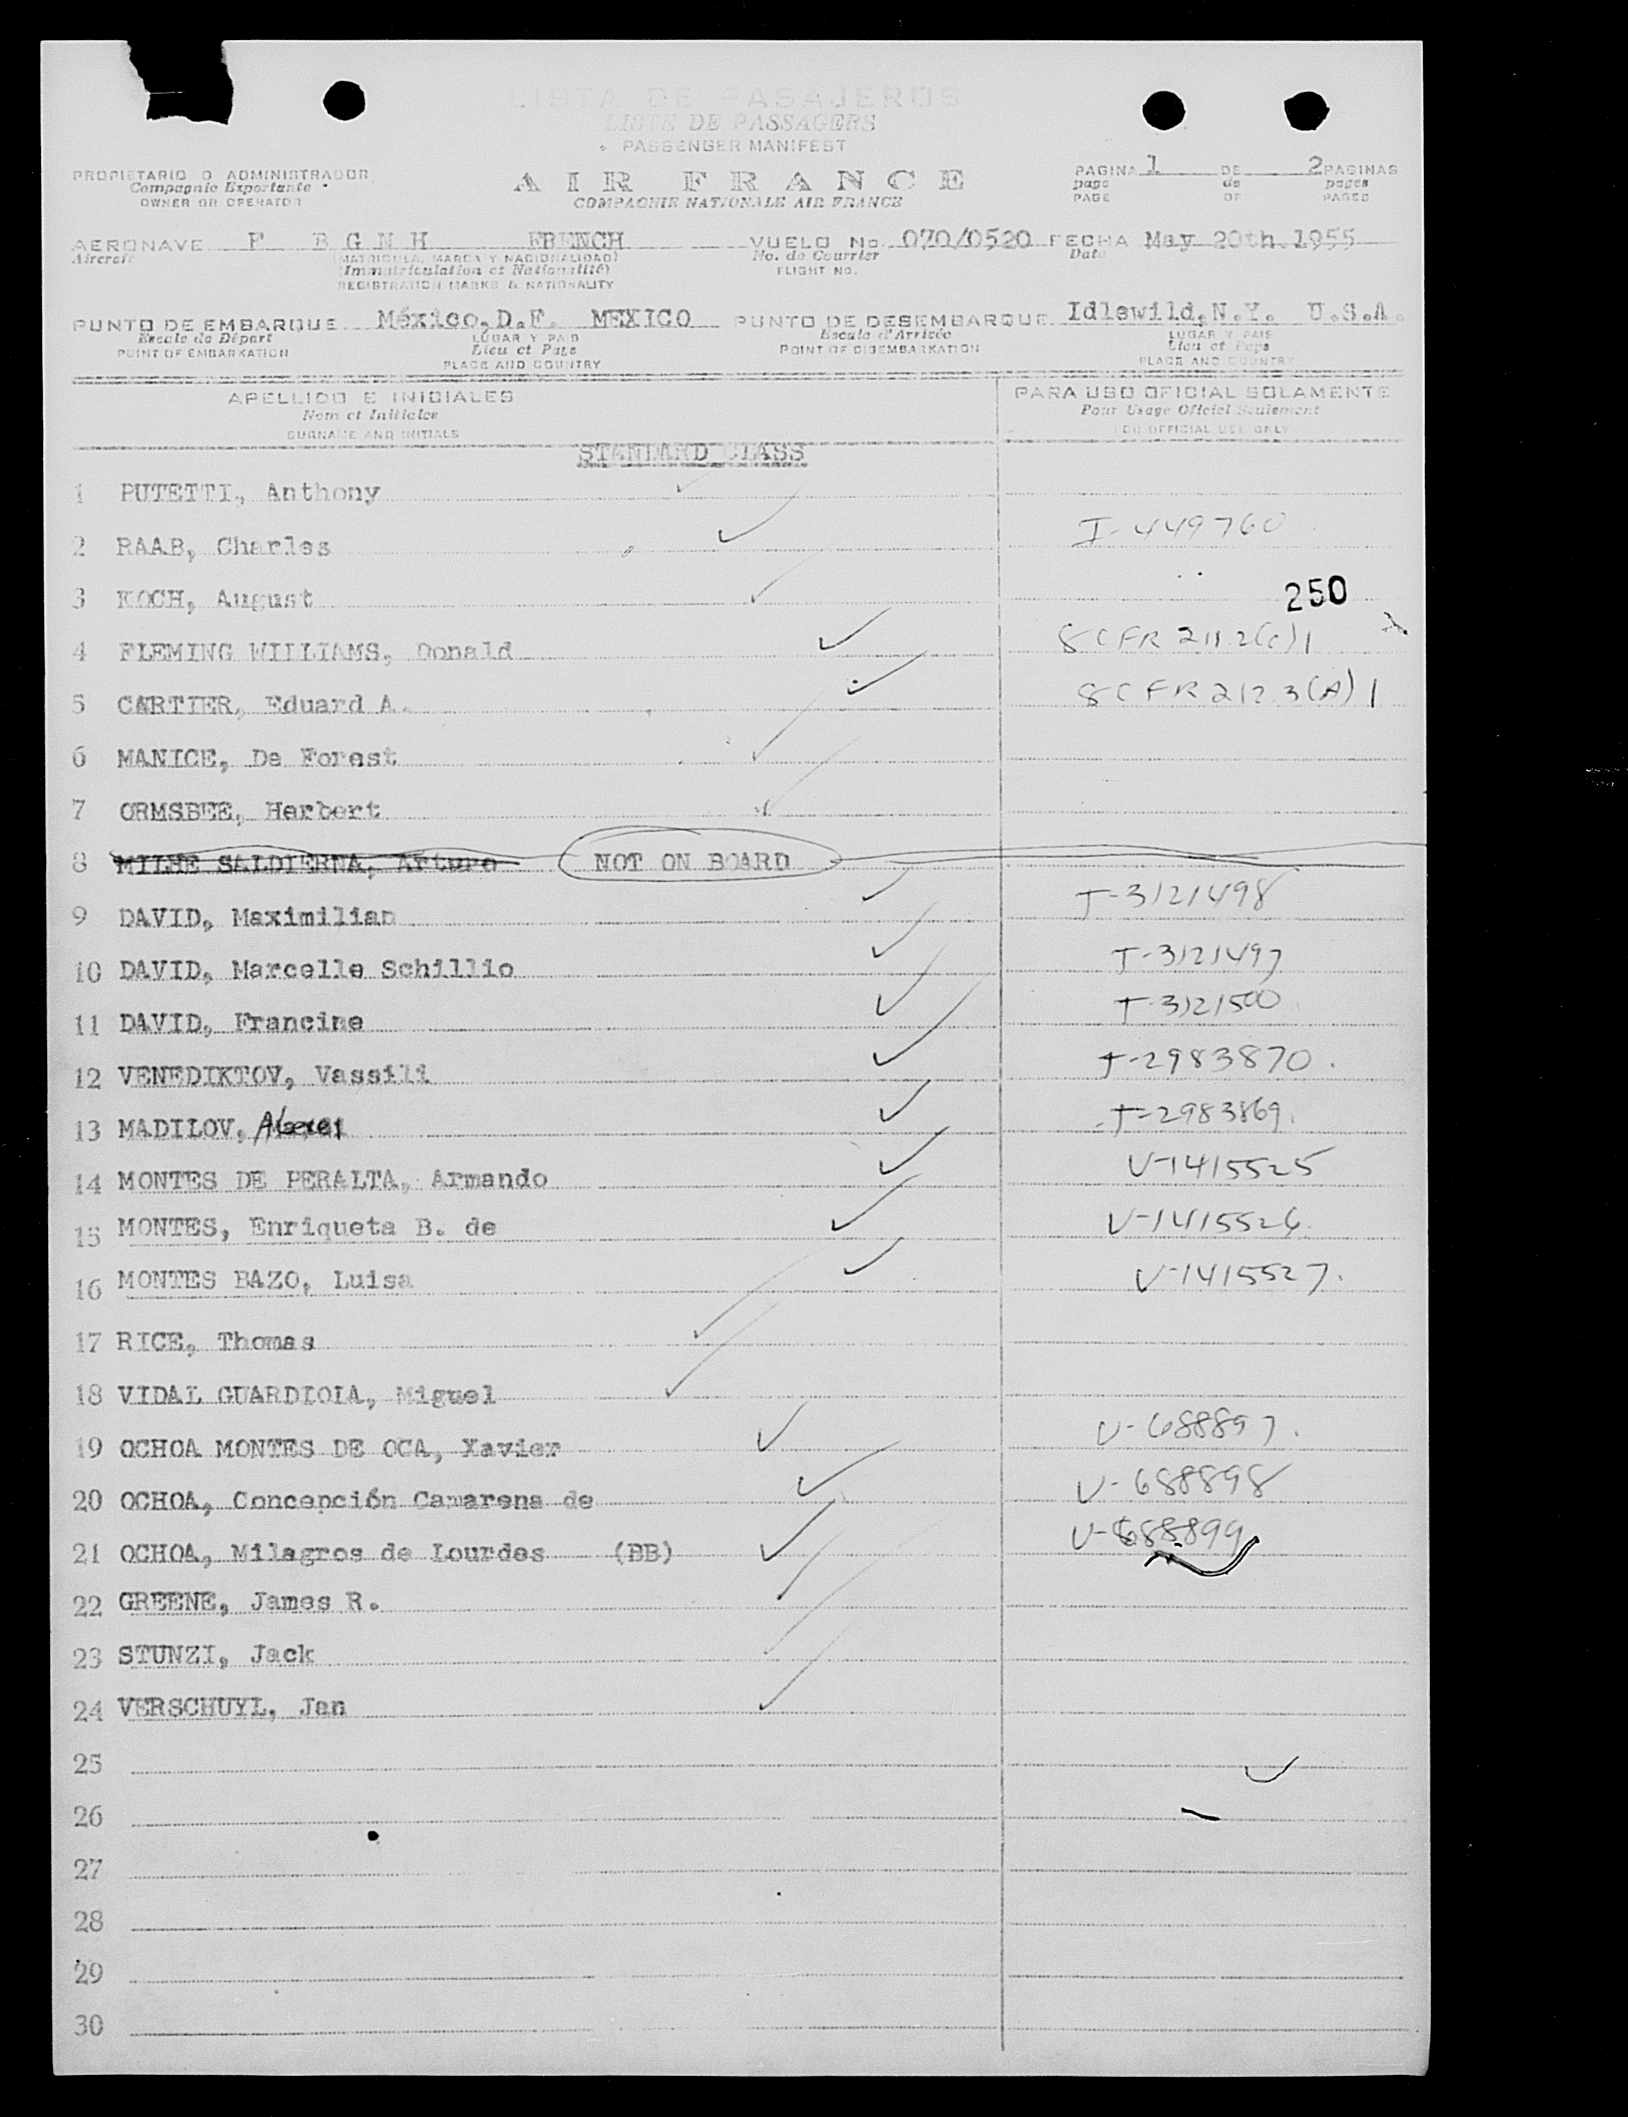 LISTA DE PASAJEROS
LISTE DE PASSAGERS
PASSENGER MANIFEST
PROPIETARIO O ADMINISTRADOR
Compagnie Exportante
OWNER OR OPERATOR
AIR FRANCE
COMPAGNIE NATIONALE AIR FRANCE
PAGINA 1 DE 2 PAGINAS
page de pages
PAGE OF PAGES
AERONAVE F BGNH FRENCH VUELO No. 070/0520 FECHA May 20th.1955
Aircraft (MATRICULA, MARCA Y NACIONALIDAD) No. de Courrier Date
(Immatriculation et Nationalité) FLIGHT NO.
REGISTRATION MARKS & NATIONALITY
PUNTO DE EMBARQUE México,D.F. MEXICO PUNTO DE DESEMBARQUE Idlewild,N.Y. U.S.A.
Escale de Départ LUGAR Y PAIS Escale d'Arrivée LUGAR Y PAIS
POINT OF EMBARKATION Lieu et Pays POINT OF DISEMBARKATION Lieu et Pays
PLACE AND COUNTRY PLACE AND COUNTRY
APELLIDO E INICIALES PARA USO OFICIAL SOLAMENTE
Nom et Initiales Pour Usage Officiel Seulement
SURNAME AND INITIALS FOR OFFICIAL USE ONLY
STANDARD CLASS
1 PUTETTI, Anthony
2 RAAB, Charles I-449760
3 KOCH, August 250
4 FLEMING WILLIAMS, Donald 8 CFR 211.2(c)1
5 CARTIER, Eduard A. 8 CFR 212.3(A)1
6 MANICE, De Forest
7 ORMSBEE, Herbert
8 MILHE SALDIERNA, Arturo NOT ON BOARD
9 DAVID, Maximilian T-3121498
10 DAVID, Marcelle Schillio T-3121497
11 DAVID, Francine T-3121500
12 VENEDIKTOV, Vassili T-2983870.
13 MADILOV, T-2983869.
14 MONTES DE PERALTA, Armando V-1415525
15 MONTES, Enriqueta B. de V-1415526.
16 MONTES BAZO, Luisa V-1415527.
17 RICE, Thomas
18 VIDAL GUARDIOLA, Miguel
19 OCHOA MONTES DE OCA, Xavier V-688897.
20 OCHOA, Concepción Camarena de V-688898
21 OCHOA, Milagros de Lourdes (BB) V-688899
22 GREENE, James R.
23 STUNZI, Jack
24 VERSCHUYL, Jan
25
26
27
28
29
30